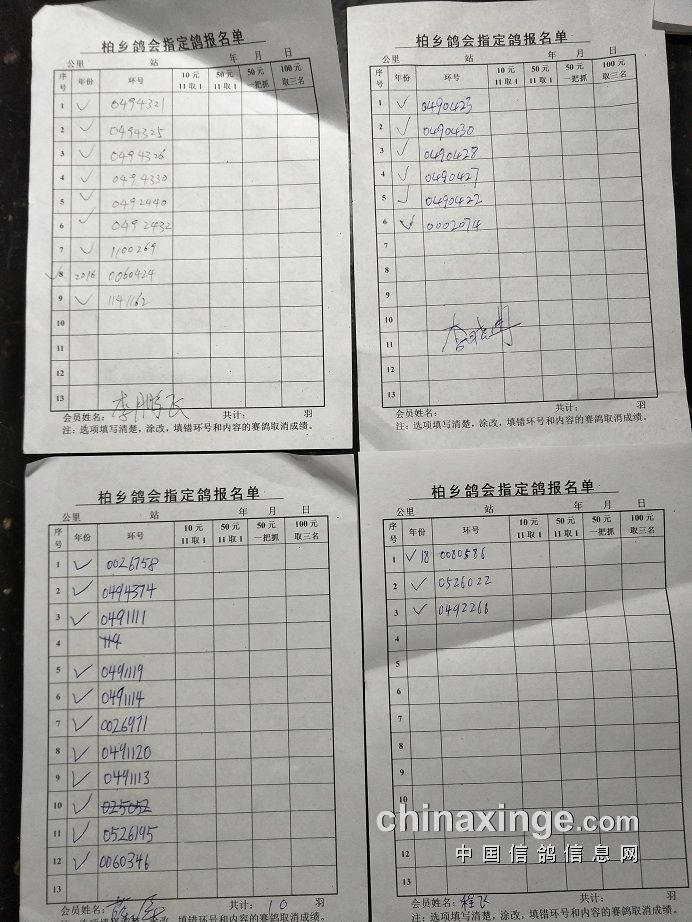 柏乡鸽会指定鸽报名单
公里 站 年 月 日
序号 年份 环号 10元 11取1 50元 11取1 50元 一把抓 100元 取三名
1 ✓ 0494321
2 ✓ 0494325
3 ✓ 0494326
4 ✓ 0494330
5 ✓ 0492440
6 ✓ 0492432
7 ✓ 1100269
✓ 8 2016 0060424
9 ✓ 1141162
10
11
12
13
会员姓名: 李鹏飞 共计: 羽
注:选项填写清楚,涂改,填错环号和内容的赛鸽取消成绩。
柏乡鸽会指定鸽报名单
公里 站 年 月 日
序号 年份 环号 10元 11取1 50元 11取1 50元 一把抓 100元 取三名
1 ✓ 0490423
2 ✓ 0490430
3 ✓ 0490428
4 ✓ 0490427
5 ✓ 0490422
6 ✓ 0002074
7
8
9
10
11
12
13
会员姓名: 共计: 羽
注:选项填写清楚,涂改,填错环号和内容的赛鸽取消成绩。
柏乡鸽会指定鸽报名单
公里 站 年 月 日
序号 年份 环号 10元 11取1 50元 11取1 50元 一把抓 100元 取三名
1 ✓ 0026758
2 ✓ 0494374
3 ✓ 0491111
4 114
5 ✓ 0491119
6 ✓ 0491114
7 ✓ 0026971
8 ✓ 0491120
9 ✓ 0491113
10 ✓ 025052
11 ✓ 0526195
12 ✓ 0060346
13
会员姓名: 共计: 10 羽
注:选项填 改,填错环号和内容的赛鸽取消成绩。
柏乡鸽会指定鸽报名单
公里 站 年 月 日
序号 年份 环号 10元 11取1 50元 11取1 50元 一把抓 100元 取三名
1 ✓18 0080586
2 ✓ 0526022
3 ✓ 0492266
4
5
6
7
8
9
10
11
12
13
会员姓名: 程飞 共计: 羽
注:选项填写清楚,涂改,填错环号和内容的赛鸽取消成绩。
chinaxinge.com
中国信鸽信息网